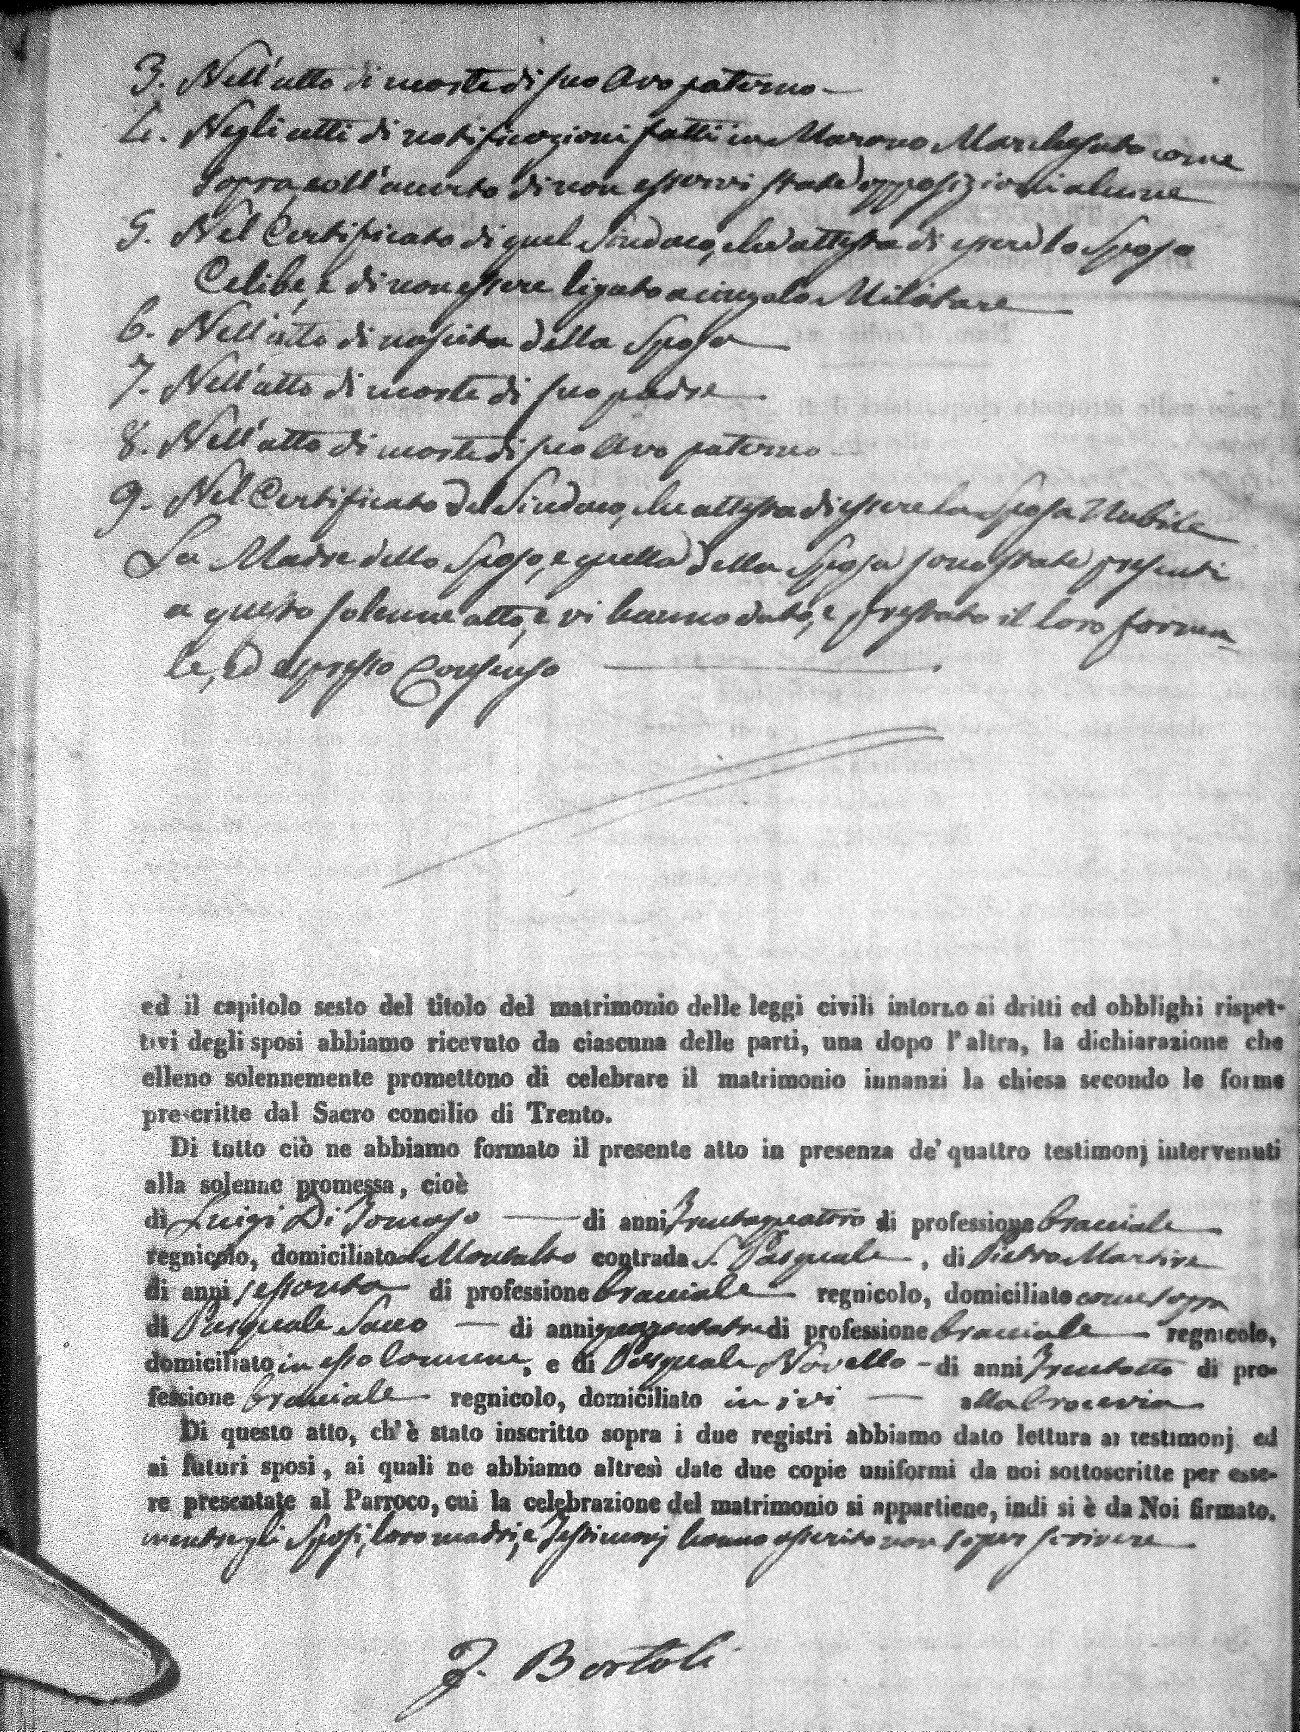 3. Nell'atto di morte di suo Avo paterno —
4. Negli atti di notificazioni fatti in Marano Marchesato come
sopra, coll'accerto di non esservi state opposizioni alcune
5. Nel Certificato di quel Sindaco, che attesta di essere lo Sposo
Celibe, e di non essere ligato a cingolo Militare
6. Nell'atto di nascita della Sposa
7. Nell'atto di morte di suo padre
8. Nell'atto di morte di suo Avo paterno
9. Nel Certificato del Sindaco, che attesta di essere la Sposa Nubile
La Madre dello Sposo, e quella della Sposa sono state presenti
a questo solenne atto, e vi hanno dato, e prestato il loro forma
le, ed espresso Consenso
ed il capitolo sesto del titolo del matrimonio delle leggi civili intorno ai dritti ed obblighi rispet-
tivi degli sposi abbiamo ricevuto da ciascuna delle parti, una dopo l'altra, la dichiarazione che
elleno solennemente promettono di celebrare il matrimonio innanzi la chiesa secondo le forme
prescritte dal Sacro concilio di Trento.
Di tutto ciò ne abbiamo formato il presente atto in presenza de' quattro testimonj intervenuti
alla solenne promessa, cioè
di Luigi Di Tomaso — di anni Trentaquattro di professione bracciale
regnicolo, domiciliato a Montalto contrada S. Pasquale, di Pietro Martire
di anni sessanta di professione bracciale regnicolo, domiciliato come sopra
di Pasquale Sacco — di anni quarantatre di professione bracciale regnicolo,
domiciliato in esso Comune, e di Pasquale Novello - di anni Trentotto di pro-
fessione bracciale regnicolo, domiciliato in ivi —
Di questo atto, ch'è stato inscritto sopra i due registri abbiamo dato lettura ai testimonj ed
ai futuri sposi, ai quali ne abbiamo altresì date due copie uniformi da noi sottoscritte per esse-
re presentate al Parroco, cui la celebrazione del matrimonio si appartiene, indi si è da Noi firmato.
mentre gli Sposi, loro madri, e Testimonj hanno asserito non saper scrivere
F. Bortoli